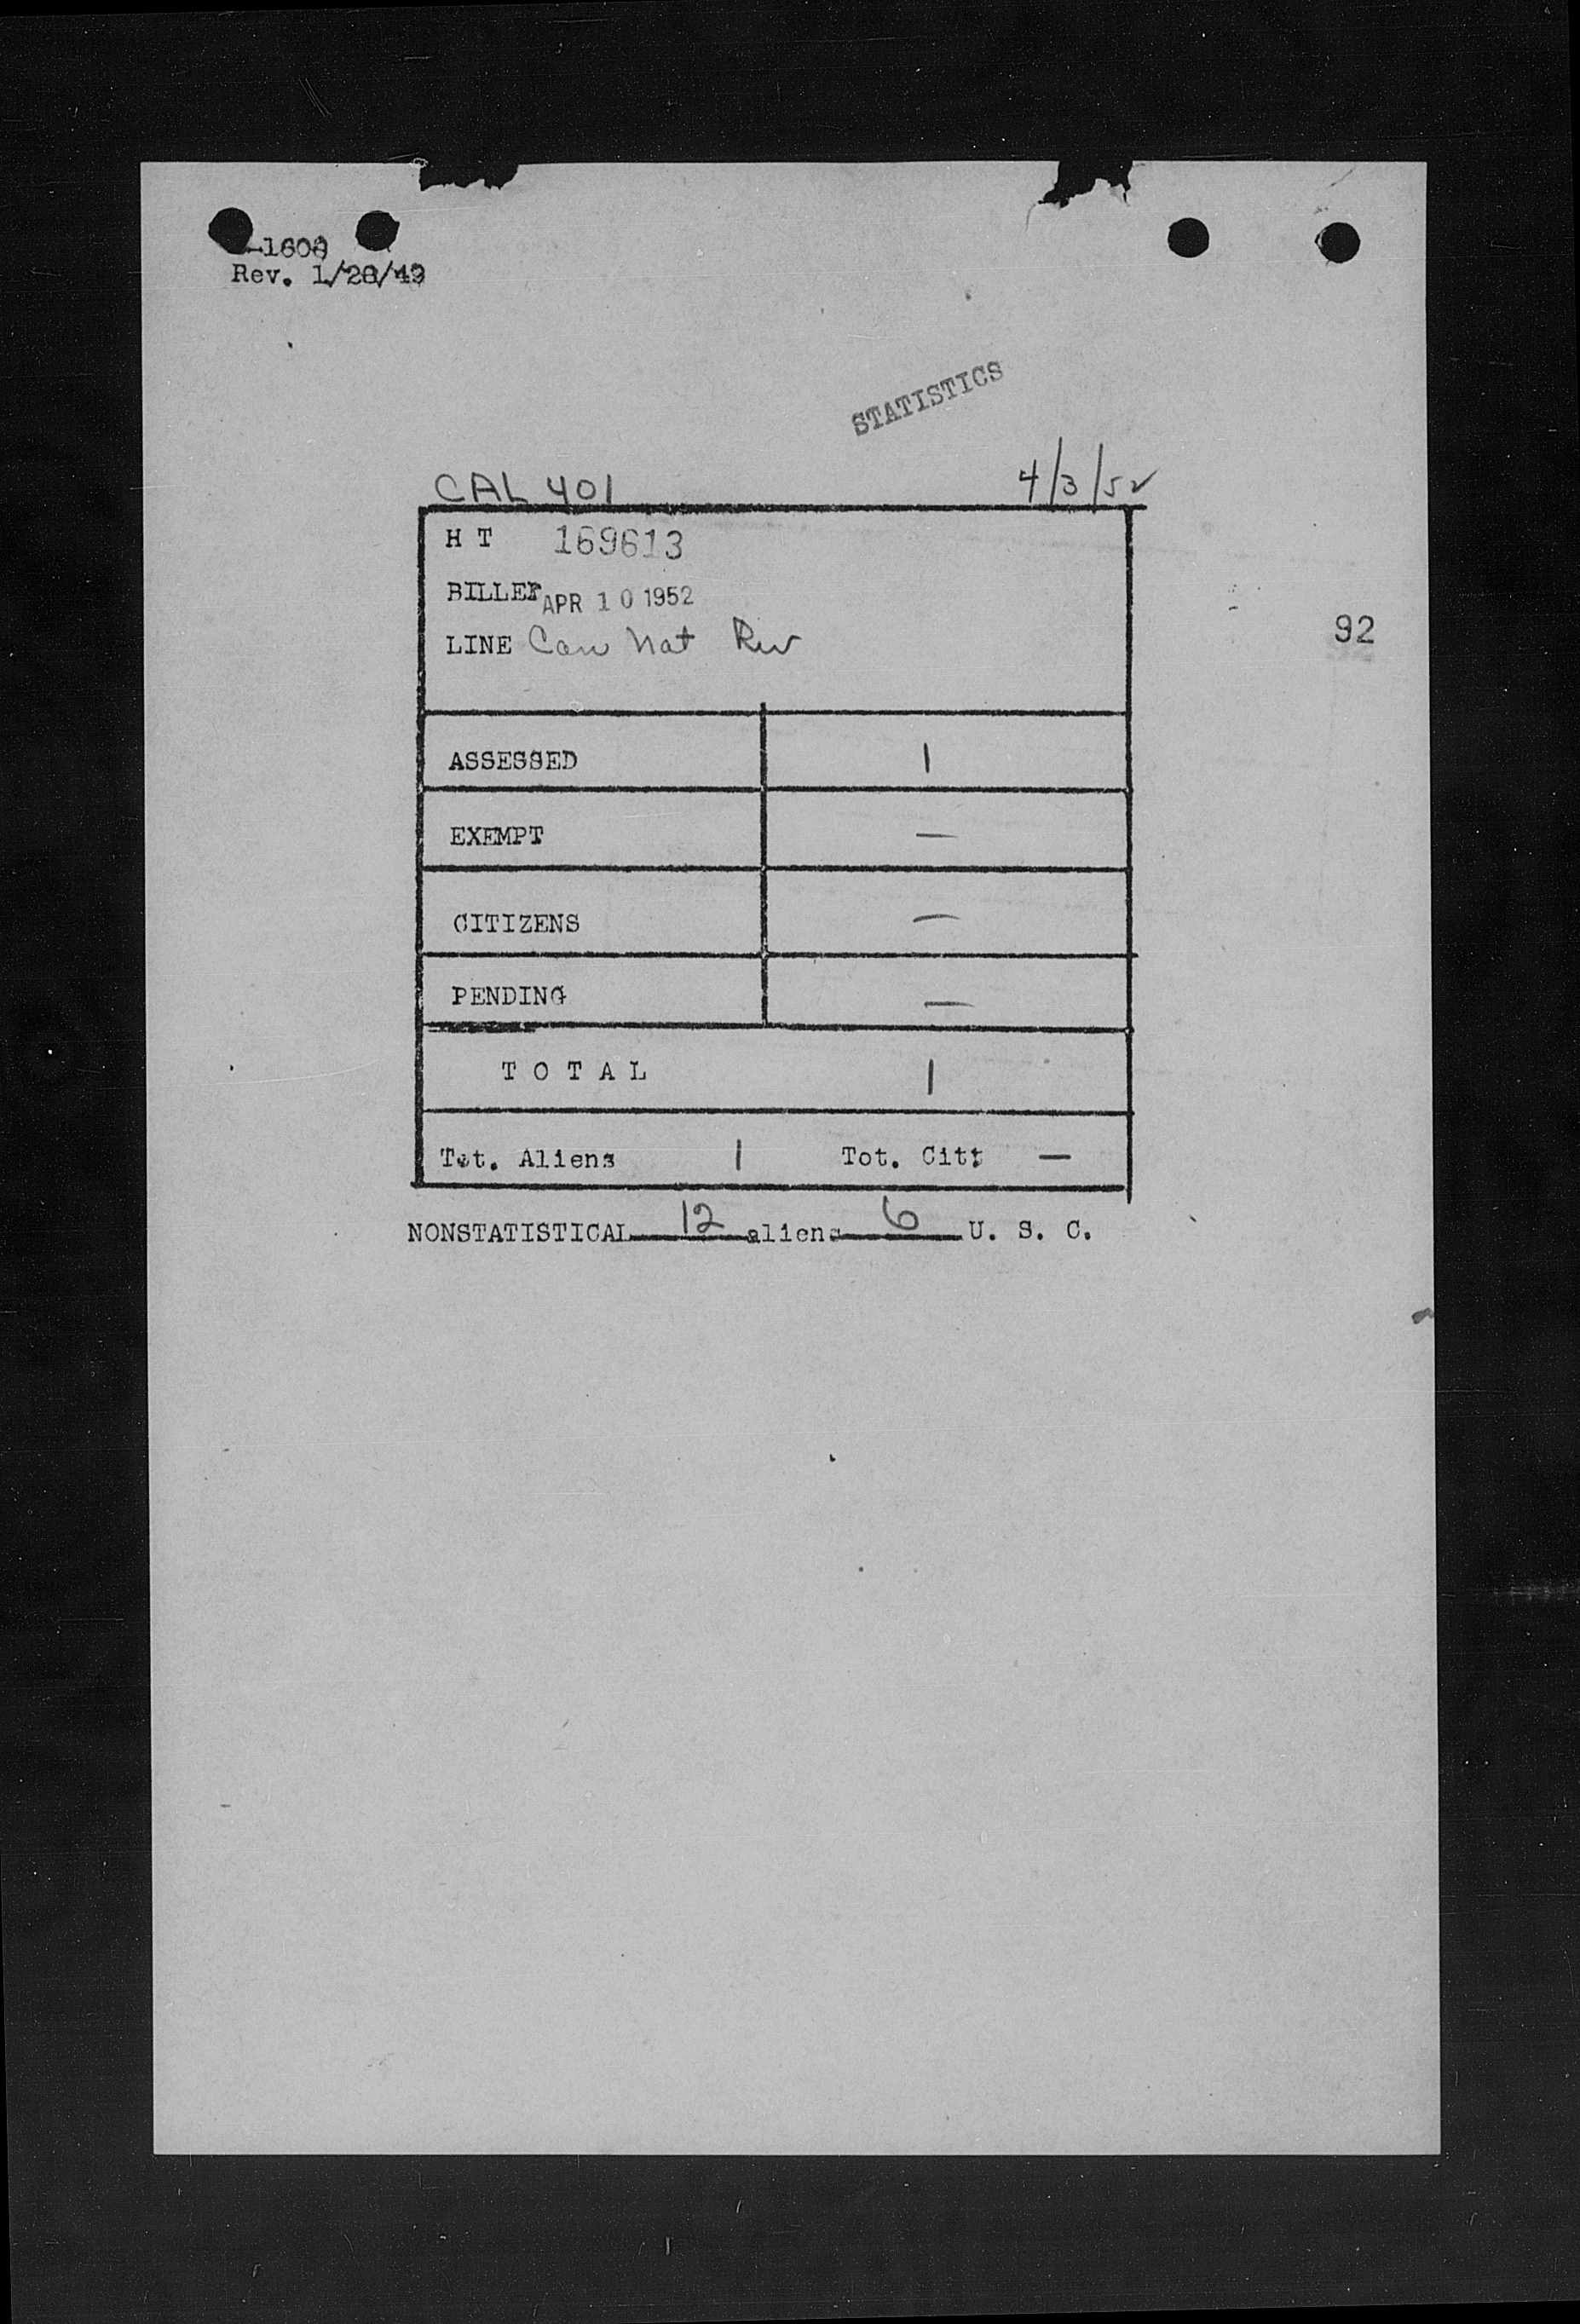 -1608
Rev. 1/28/49
STATISTICS
CAL 401 4/3/52
H T 169613
BILLED APR 10 1952
LINE Can Nat
92
ASSESSED 1
EXEMPT —
CITIZENS —
PENDING —
T O T A L 1
Tot. Aliens 1 Tot. Citz —
NONSTATISTICAL 12 aliens 6 U. S. C.